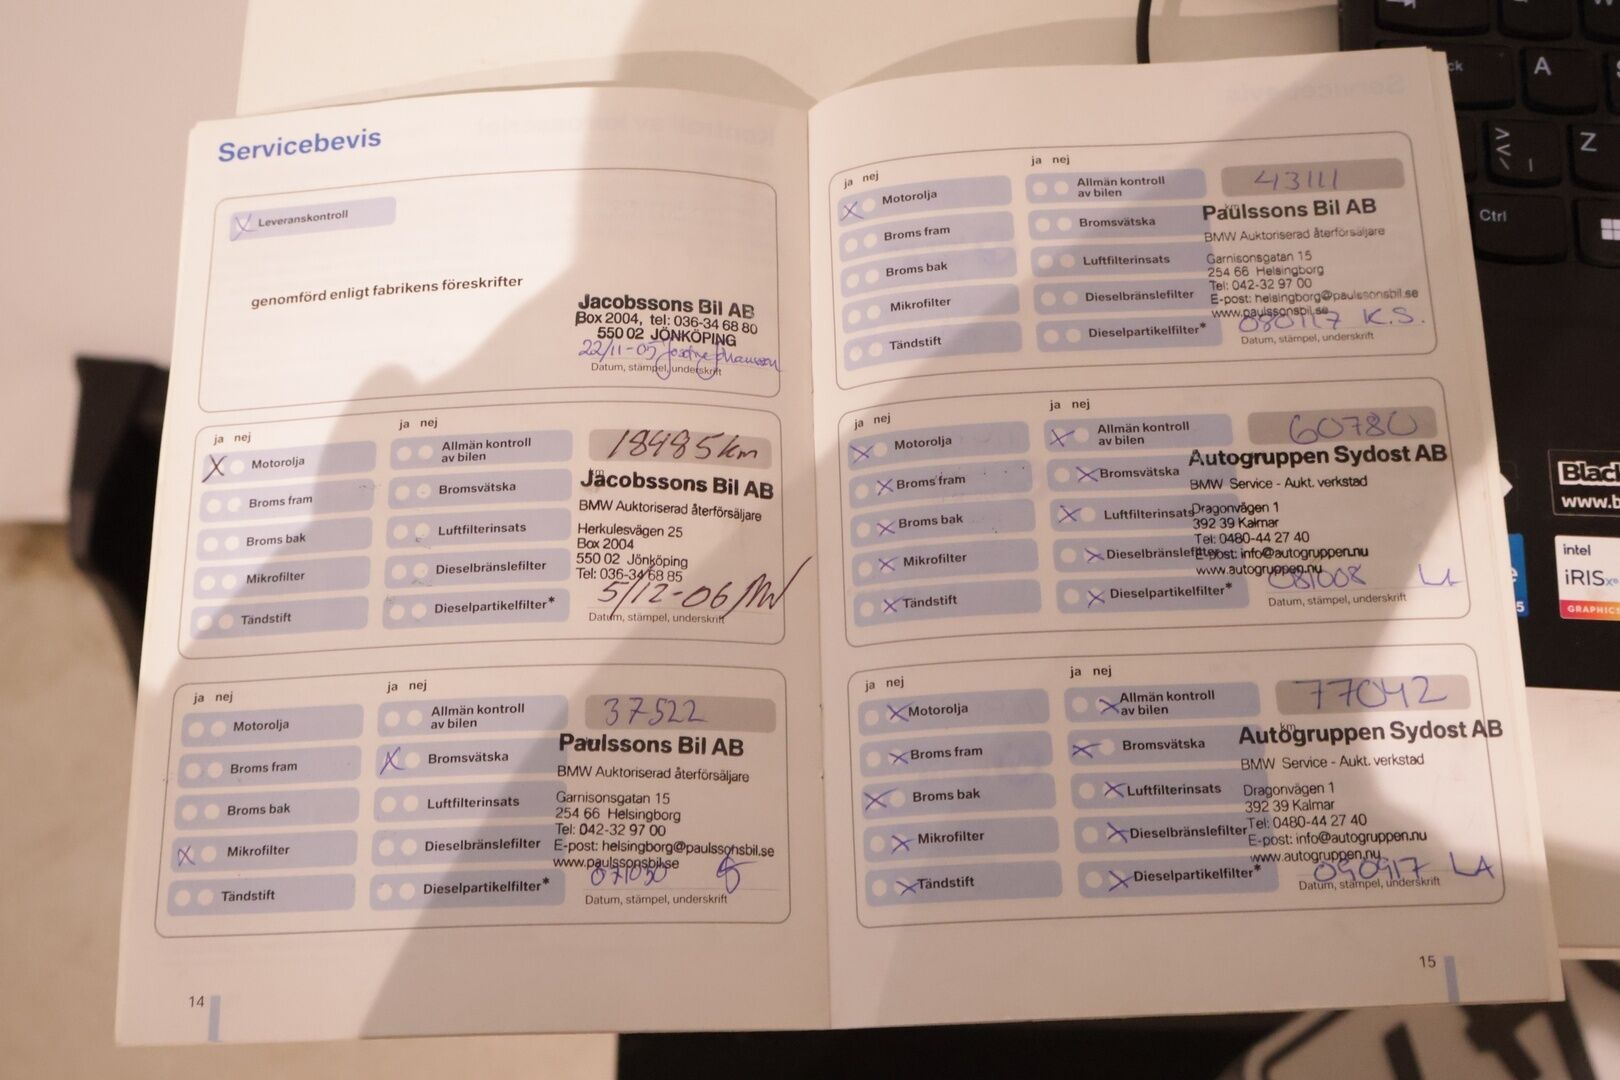 Servicebevis
Leveranskontroll
genomförd enligt fabrikens föreskrifter
Jacobssons Bil AB
Box 2004, tel: 036-34 68 80
550 02 JÖNKÖPING
22/11-05
Datum, stämpel, underskrift
ja nej
ja nej
Motorolja
Broms fram
Broms bak
Mikrofilter
Tändstift
Allmän kontroll
av bilen
Bromsvätska
Luftfilterinsats
Dieselbränslefilter
Dieselpartikelfilter*
18485 km
km
Jacobssons Bil AB
BMW Auktoriserad återförsäljare
Herkulesvägen 25
Box 2004
550 02 Jönköping
Tel: 036-34 68 85
5/12-06
Datum, stämpel, underskrift
ja nej
ja nej
Motorolja
Broms fram
Broms bak
Mikrofilter
Tändstift
Allmän kontroll
av bilen
Bromsvätska
Luftfilterinsats
Dieselbränslefilter
Dieselpartikelfilter*
37522
Paulssons Bil AB
BMW Auktoriserad återförsäljare
Garnisonsgatan 15
254 66 Helsingborg
Tel: 042-32 97 00
E-post: helsingborg@paulssonsbil.se
www.paulssonsbil.se
071030
Datum, stämpel, underskrift
14
ja nej
ja nej
Motorolja
Broms fram
Broms bak
Mikrofilter
Tändstift
Allmän kontroll
av bilen
Bromsvätska
Luftfilterinsats
Dieselbränslefilter
Dieselpartikelfilter*
43111
km
Paulssons Bil AB
BMW Auktoriserad återförsäljare
Garnisonsgatan 15
254 66 Helsingborg
Tel: 042-32 97 00
E-post: helsingborg@paulssonsbil.se
www.paulssonsbil.se
080117 K.S.
Datum, stämpel, underskrift
ja nej
ja nej
Motorolja
Broms fram
Broms bak
Mikrofilter
Tändstift
Allmän kontroll
av bilen
Bromsvätska
Luftfilterinsats
Dieselbränslefilter
Dieselpartikelfilter*
60780
Autogruppen Sydost AB
BMW Service - Aukt. verkstad
Dragonvägen 1
392 39 Kalmar
Tel: 0480-44 27 40
E-post: info@autogruppen.nu
www.autogruppen.nu
081008 LA
Datum, stämpel, underskrift
ja nej
ja nej
Motorolja
Broms fram
Broms bak
Mikrofilter
Tändstift
Allmän kontroll
av bilen
Bromsvätska
Luftfilterinsats
Dieselbränslefilter
Dieselpartikelfilter*
77042
km
Autogruppen Sydost AB
BMW Service - Aukt. verkstad
Dragonvägen 1
392 39 Kalmar
Tel: 0480-44 27 40
E-post: info@autogruppen.nu
www.autogruppen.nu
090917 LA
Datum, stämpel, underskrift
15
A
Z
Ctrl
intel
IRISxe
GRAPHICS